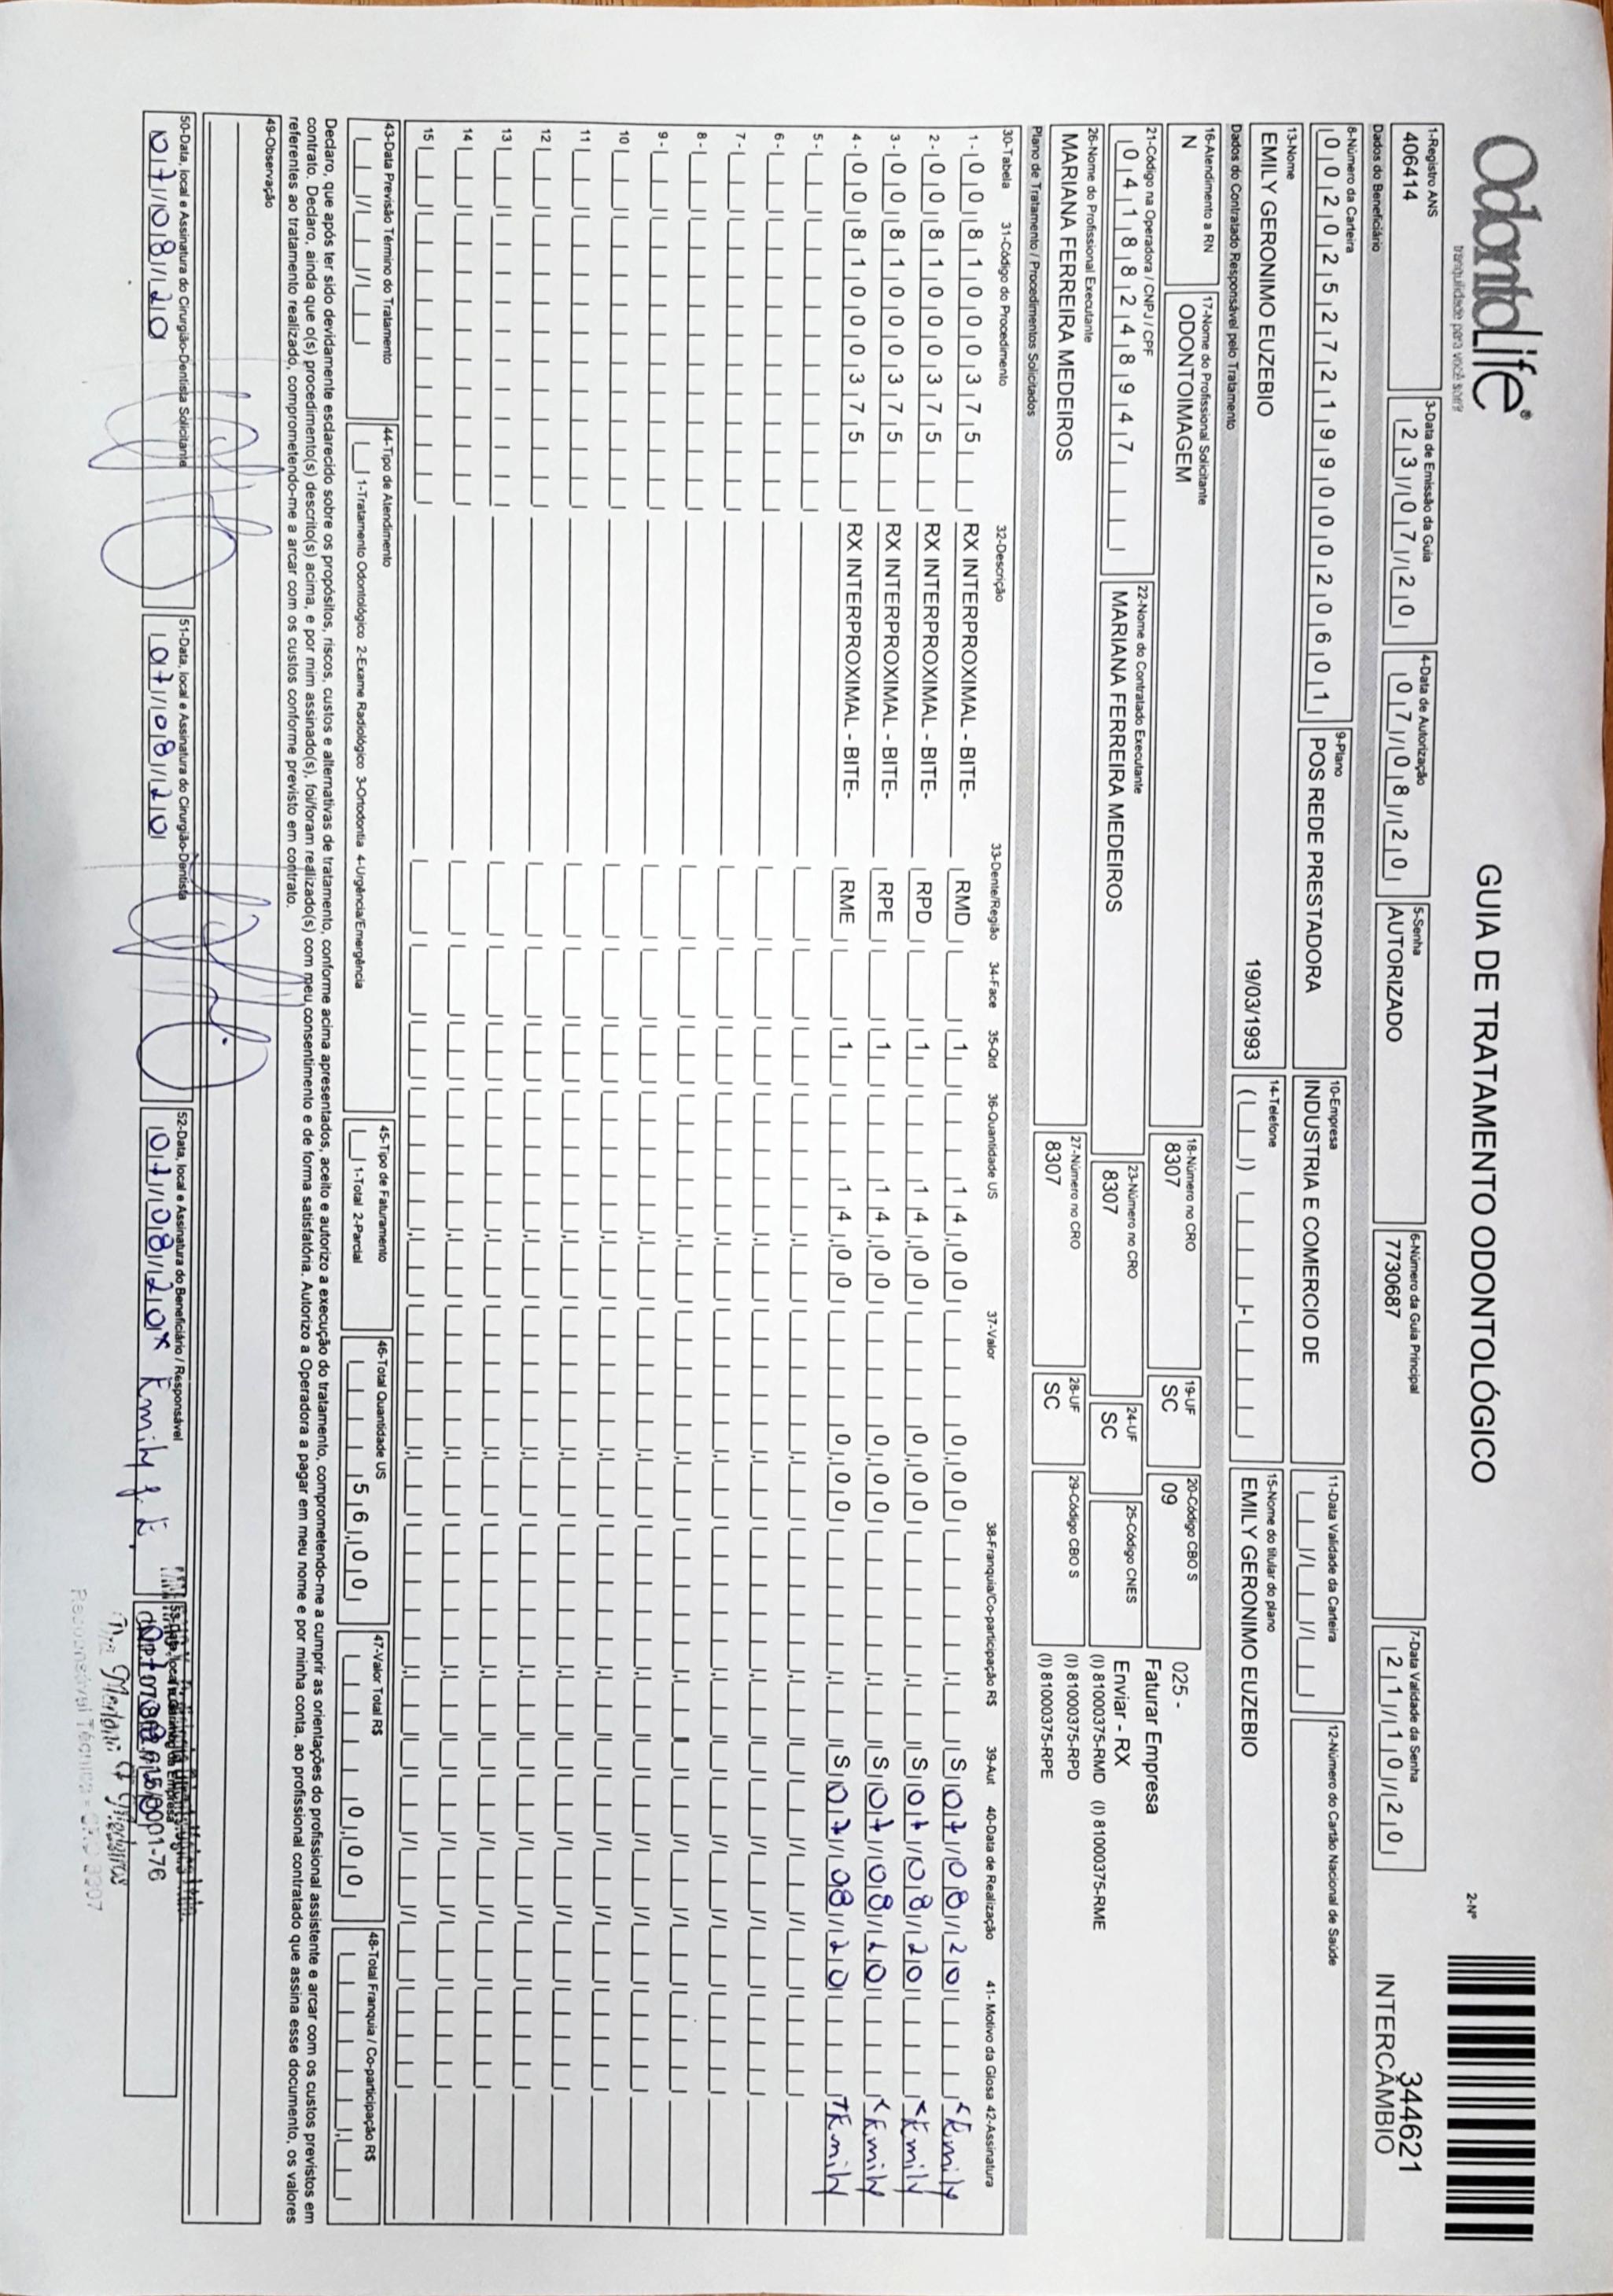 OdontoLife®
tranquilidade para você sorrir
GUIA DE TRATAMENTO ODONTOLÓGICO
2-Nº
344621
INTERCÂMBIO
1-Registro ANS
406414
3-Data de Emissão da Guia
23/07/20
4-Data de Autorização
07/08/20
5-Senha
AUTORIZADO
6-Número da Guia Principal
7730687
7-Data Validade da Senha
21/10/20
Dados do Beneficiário
8-Número da Carteira
00202527219900020601
9-Plano
POS REDE PRESTADORA
10-Empresa
INDUSTRIA E COMERCIO DE
11-Data Validade da Carteira
12-Número do Cartão Nacional de Saúde
13-Nome
EMILY GERONIMO EUZEBIO
19/03/1993
14-Telefone
15-Nome do titular do plano
EMILY GERONIMO EUZEBIO
Dados do Contratado Responsável pelo Tratamento
16-Atendimento a RN
N
17-Nome do Profissional Solicitante
ODONTOIMAGEM
18-Número no CRO
8307
19-UF
SC
20-Código CBO S
09
025 -
Faturar Empresa
Enviar - RX
(I) 81000375-RMD (I) 81000375-RME
(I) 81000375-RPD
(I) 81000375-RPE
21-Código na Operadora / CNPJ / CPF
04188248947
22-Nome do Contratado Executante
MARIANA FERREIRA MEDEIROS
23-Número no CRO
8307
24-UF
SC
25-Código CNES
26-Nome do Profissional Executante
MARIANA FERREIRA MEDEIROS
27-Número no CRO
8307
28-UF
SC
29-Código CBO S
Plano de Tratamento / Procedimentos Solicitados
30-Tabela 31-Código do Procedimento 32-Descrição 33-Dente/Região 34-Face 35-Qtd 36-Quantidade US 37-Valor 38-Franquia/Co-participação R$ 39-Aut 40-Data de Realização 41- Motivo da Glosa 42-Assinatura
1- 00 81000375 RX INTERPROXIMAL - BITE- RMD 1 14,00 0,00 S 07/08/20 x Emily
2- 00 81000375 RX INTERPROXIMAL - BITE- RPD 1 14,00 0,00 S 07/08/20 x Emily
3- 00 81000375 RX INTERPROXIMAL - BITE- RPE 1 14,00 0,00 S 07/08/20 x Emily
4- 00 81000375 RX INTERPROXIMAL - BITE- RME 1 14,00 0,00 S 07/08/20 x Emily
5-
6-
7-
8-
9-
10
11
12
13
14
15
43-Data Previsão Término do Tratamento
44-Tipo de Atendimento
1-Tratamento Odontológico 2-Exame Radiológico 3-Ortodontia 4-Urgência/Emergência
45-Tipo de Faturamento
1-Total 2-Parcial
46-Total Quantidade US
56,00
47-Valor Total R$
0,00
48-Total Franquia / Co-participação R$
Declaro, que após ter sido devidamente esclarecido sobre os propósitos, riscos, custos e alternativas de tratamento, conforme acima apresentados, aceito e autorizo a execução do tratamento, comprometendo-me a cumprir as orientações do profissional assistente e arcar com os custos previstos em
contrato. Declaro, ainda que o(s) procedimento(s) descrito(s) acima, e por mim assinado(s), foi/foram realizado(s) com meu consentimento e de forma satisfatória. Autorizo a Operadora a pagar em meu nome e por minha conta, ao profissional contratado que assina esse documento, os valores
referentes ao tratamento realizado, comprometendo-me a arcar com os custos conforme previsto em contrato.
49-Observação
50-Data, local e Assinatura do Cirurgião-Dentista Solicitante
07/08/20
51-Data, local e Assinatura do Cirurgião-Dentista
07/08/20
52-Data, local e Assinatura do Beneficiário / Responsável
07/08/20 x Emily G. E.
Empresa
/0001-76
Dra Mariana F Medeiros
Responsável Técnica - CRO 8307